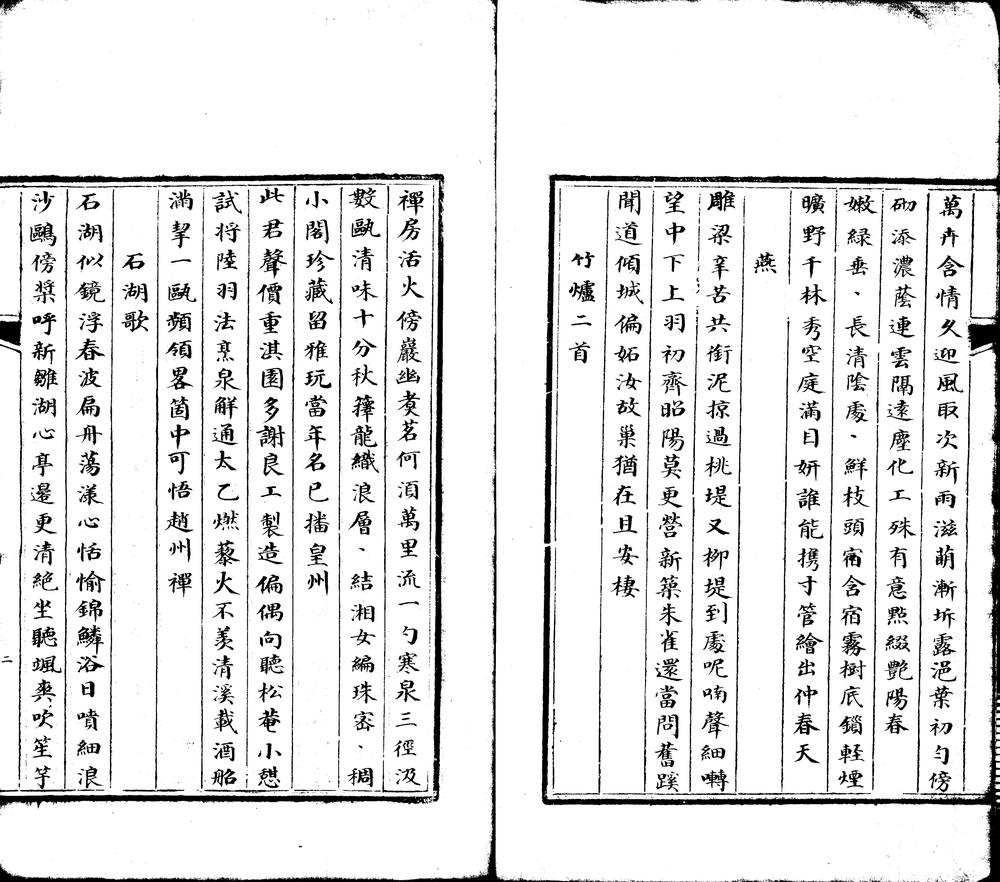 萬卉含情久迎風取次新雨滋萌漸坼露浥葉初勻傍
砌添濃蔭連雲隔遠塵化工殊有意點綴艷陽春
嫩綠垂、長清陰處、鮮枝頭窗含宿霧樹底鎖輕煙
曠野千林秀空庭滿目妍誰能携寸管繪出仲春天
燕
雕梁辛苦共銜泥掠過桃堤又柳堤到處呢喃聲細囀
望中下上羽初齊昭陽莫更營新築朱雀還當問舊蹊
聞道傾城偏妬汝故巢猶在且安棲
竹爐二首
禪房活火傍巖幽煑茗何湏萬里流一勺寒泉三徑汲
數甌清味十分秋籜龍織浪層、結湘女編珠密、稠
小閣珍藏留雅玩當年名已播皇州
此君聲價重淇園多謝良工製造偏偶向聽松菴小憇
試将陸羽法烹泉鮮通太乙燃藜火不羨清溪載酒船
滿挈一甌頻領畧箇中可悟趙州禪
石湖歌
石湖似鏡浮春波扁舟蕩漾心恬愉錦鱗浴日噴細浪
沙鷗傍槳呼新雛湖心亭邊更清絕坐聽颯爽吹笙竽
二